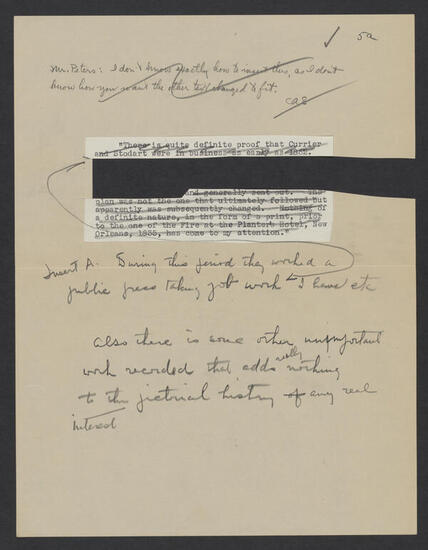 5a
Mr. Peters: I don't know exactly how to insert this, as I don't
know how you want the other text changed to fit.
CAS
"There is quite definite proof that Currier
and Stodart were in business as early as 1832.
and generally sent out. The
plan was not the one that ultimately followed but
apparently was subsequently changed. Nothing of
a definite nature, in the form of a print, prior
to the one of the Fire at the Planters Hotel, New
Orleans, 1835, has come to my attention."
Insert A. During this period they worked a
public press taking job work I have etc
Also there is some other unimportant
work recorded that adds really nothing
to the pictorial history of any real
interest